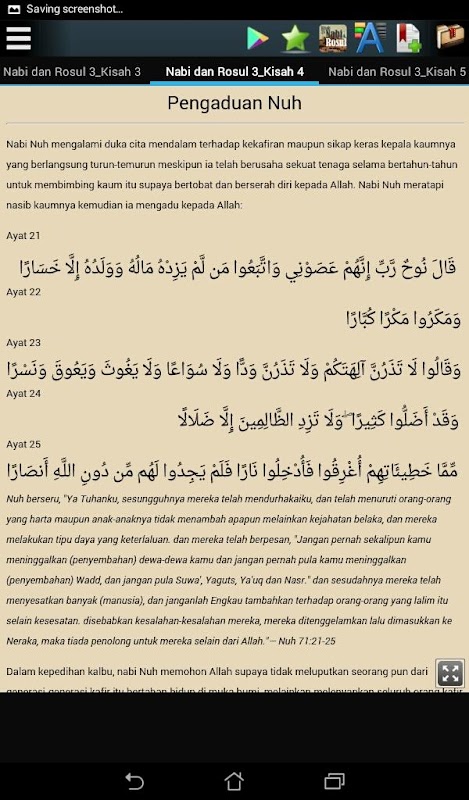 Saving screenshot...
Nabi dan Rosul
Nabi dan Rosul 3_Kisah 3
Nabi dan Rosul 3_Kisah 4
Nabi dan Rosul 3_Kisah 5
Pengaduan Nuh
Nabi Nuh mengalami duka cita mendalam terhadap kekafiran maupun sikap keras kepala kaumnya
yang berlangsung turun-temurun meskipun ia telah berusaha sekuat tenaga selama bertahun-tahun
untuk membimbing kaum itu supaya bertobat dan berserah diri kepada Allah. Nabi Nuh meratapi
nasib kaumnya kemudian ia mengadu kepada Allah:
Ayat 21
قَالَ نُوحٌ رَّبِّ إِنَّهُمْ عَصَوْنِي وَاتَّبَعُوا مَن لَّمْ يَزِدْهُ مَالُهُ وَوَلَدُهُ إِلَّا خَسَارًا
Ayat 22
وَمَكَرُوا مَكْرًا كُبَّارًا
Ayat 23
وَقَالُوا لَا تَذَرُنَّ آلِهَتَكُمْ وَلَا تَذَرُنَّ وَدًّا وَلَا سُوَاعًا وَلَا يَغُوثَ وَيَعُوقَ وَنَسْرًا
Ayat 24
وَقَدْ أَضَلُّوا كَثِيرًا ۖ وَلَا تَزِدِ الظَّالِمِينَ إِلَّا ضَلَالًا
Ayat 25
مِّمَّا خَطِيئَاتِهِمْ أُغْرِقُوا فَأُدْخِلُوا نَارًا فَلَمْ يَجِدُوا لَهُم مِّن دُونِ اللَّهِ أَنصَارًا
Nuh berseru, "Ya Tuhanku, sesungguhnya mereka telah mendurhakaiku, dan telah menuruti orang-orang
yang harta maupun anak-anaknya tidak menambah apapun melainkan kejahatan belaka, dan mereka
melakukan tipu daya yang keterlaluan. dan mereka telah berpesan, "Jangan pernah sekalipun kamu
meninggalkan (penyembahan) dewa-dewa kamu dan jangan pernah pula kamu meninggalkan
(penyembahan) Wadd, dan jangan pula Suwa', Yaguts, Ya'uq dan Nasr." dan sesudahnya mereka telah
menyesatkan banyak (manusia), dan janganlah Engkau tambahkan terhadap orang-orang yang lalim itu
selain kesesatan. disebabkan kesalahan-kesalahan mereka, mereka ditenggelamkan lalu dimasukkan ke
Neraka, maka tiada penolong untuk mereka selain dari Allah."-- Nuh 71:21-25
Dalam kepedihan kalbu, nabi Nuh memohon Allah supaya tidak meluputkan seorang pun dari
generasi-generasi kafir itu bertahan hidup di muka bumi, melainkan melenyapkan seluruh orang kafir